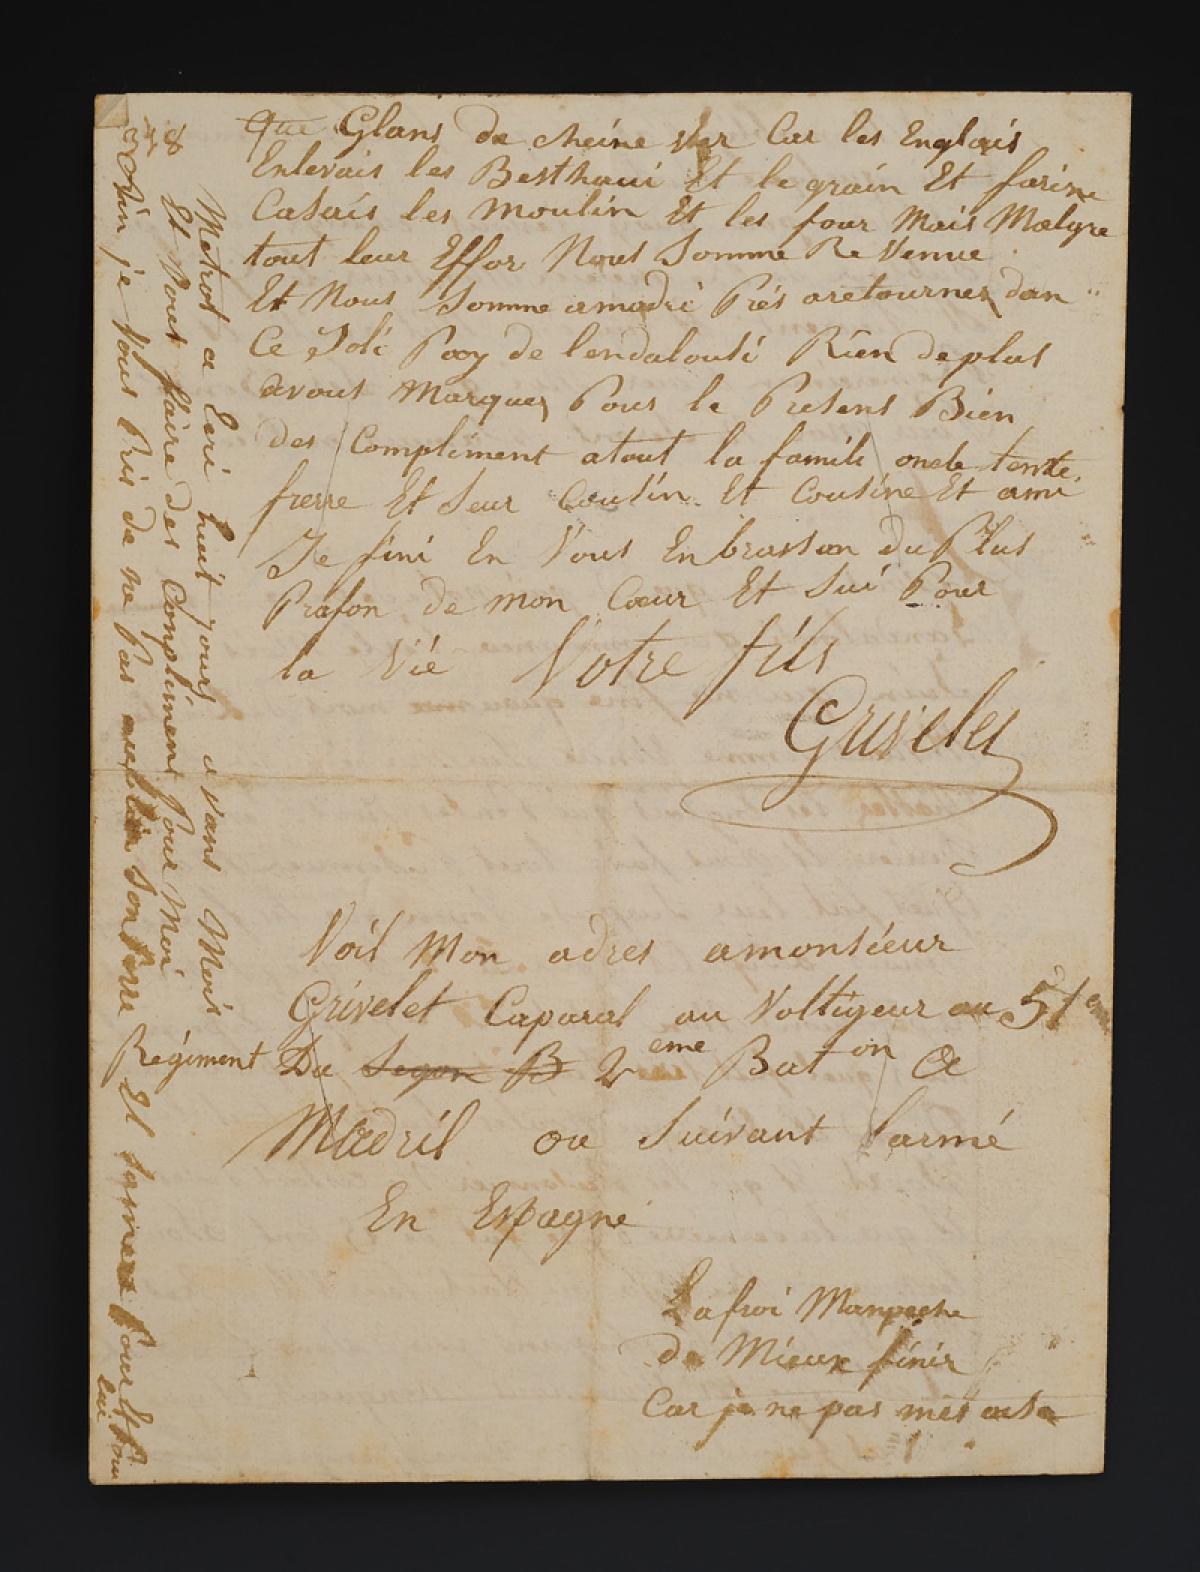 que Glans de cheine ver Car les Englais
Enlevais les Besthaui Et le grain Et farine
Casais les Moulin Et les four Mais Malgre
tout leur Effor Nous Somme Re Venue
Et Nous Somme amadri Prés aretourner dan
Ce Joli Pay de lendalousi Rien de plus
avous Marquer Pour le Present Bien
des Compliment atout la famile oncle tente
frerre Et Seur Cousin Et Cousine Et ami
Je fini En Vous En brassan du Plus
Profon de mon Coeur Et Sui Pour
la Vié Votre fils
Grivelet
Voil Mon adres amonsieur
Grivelet Caparal au Voltigeur au 51eme
Regiment Du Segon B 2eme Baton A
Madril ou Suivant larmé
En Espagne
Lafroi Manpeche
de Mieux finir
Car je ne pas mes
Metrot a Ecri huit jours avans Moi
Et Vous faire des Compliment Pour Moi
je Vous Pris de ne Pas son Pere Et
Pour lui